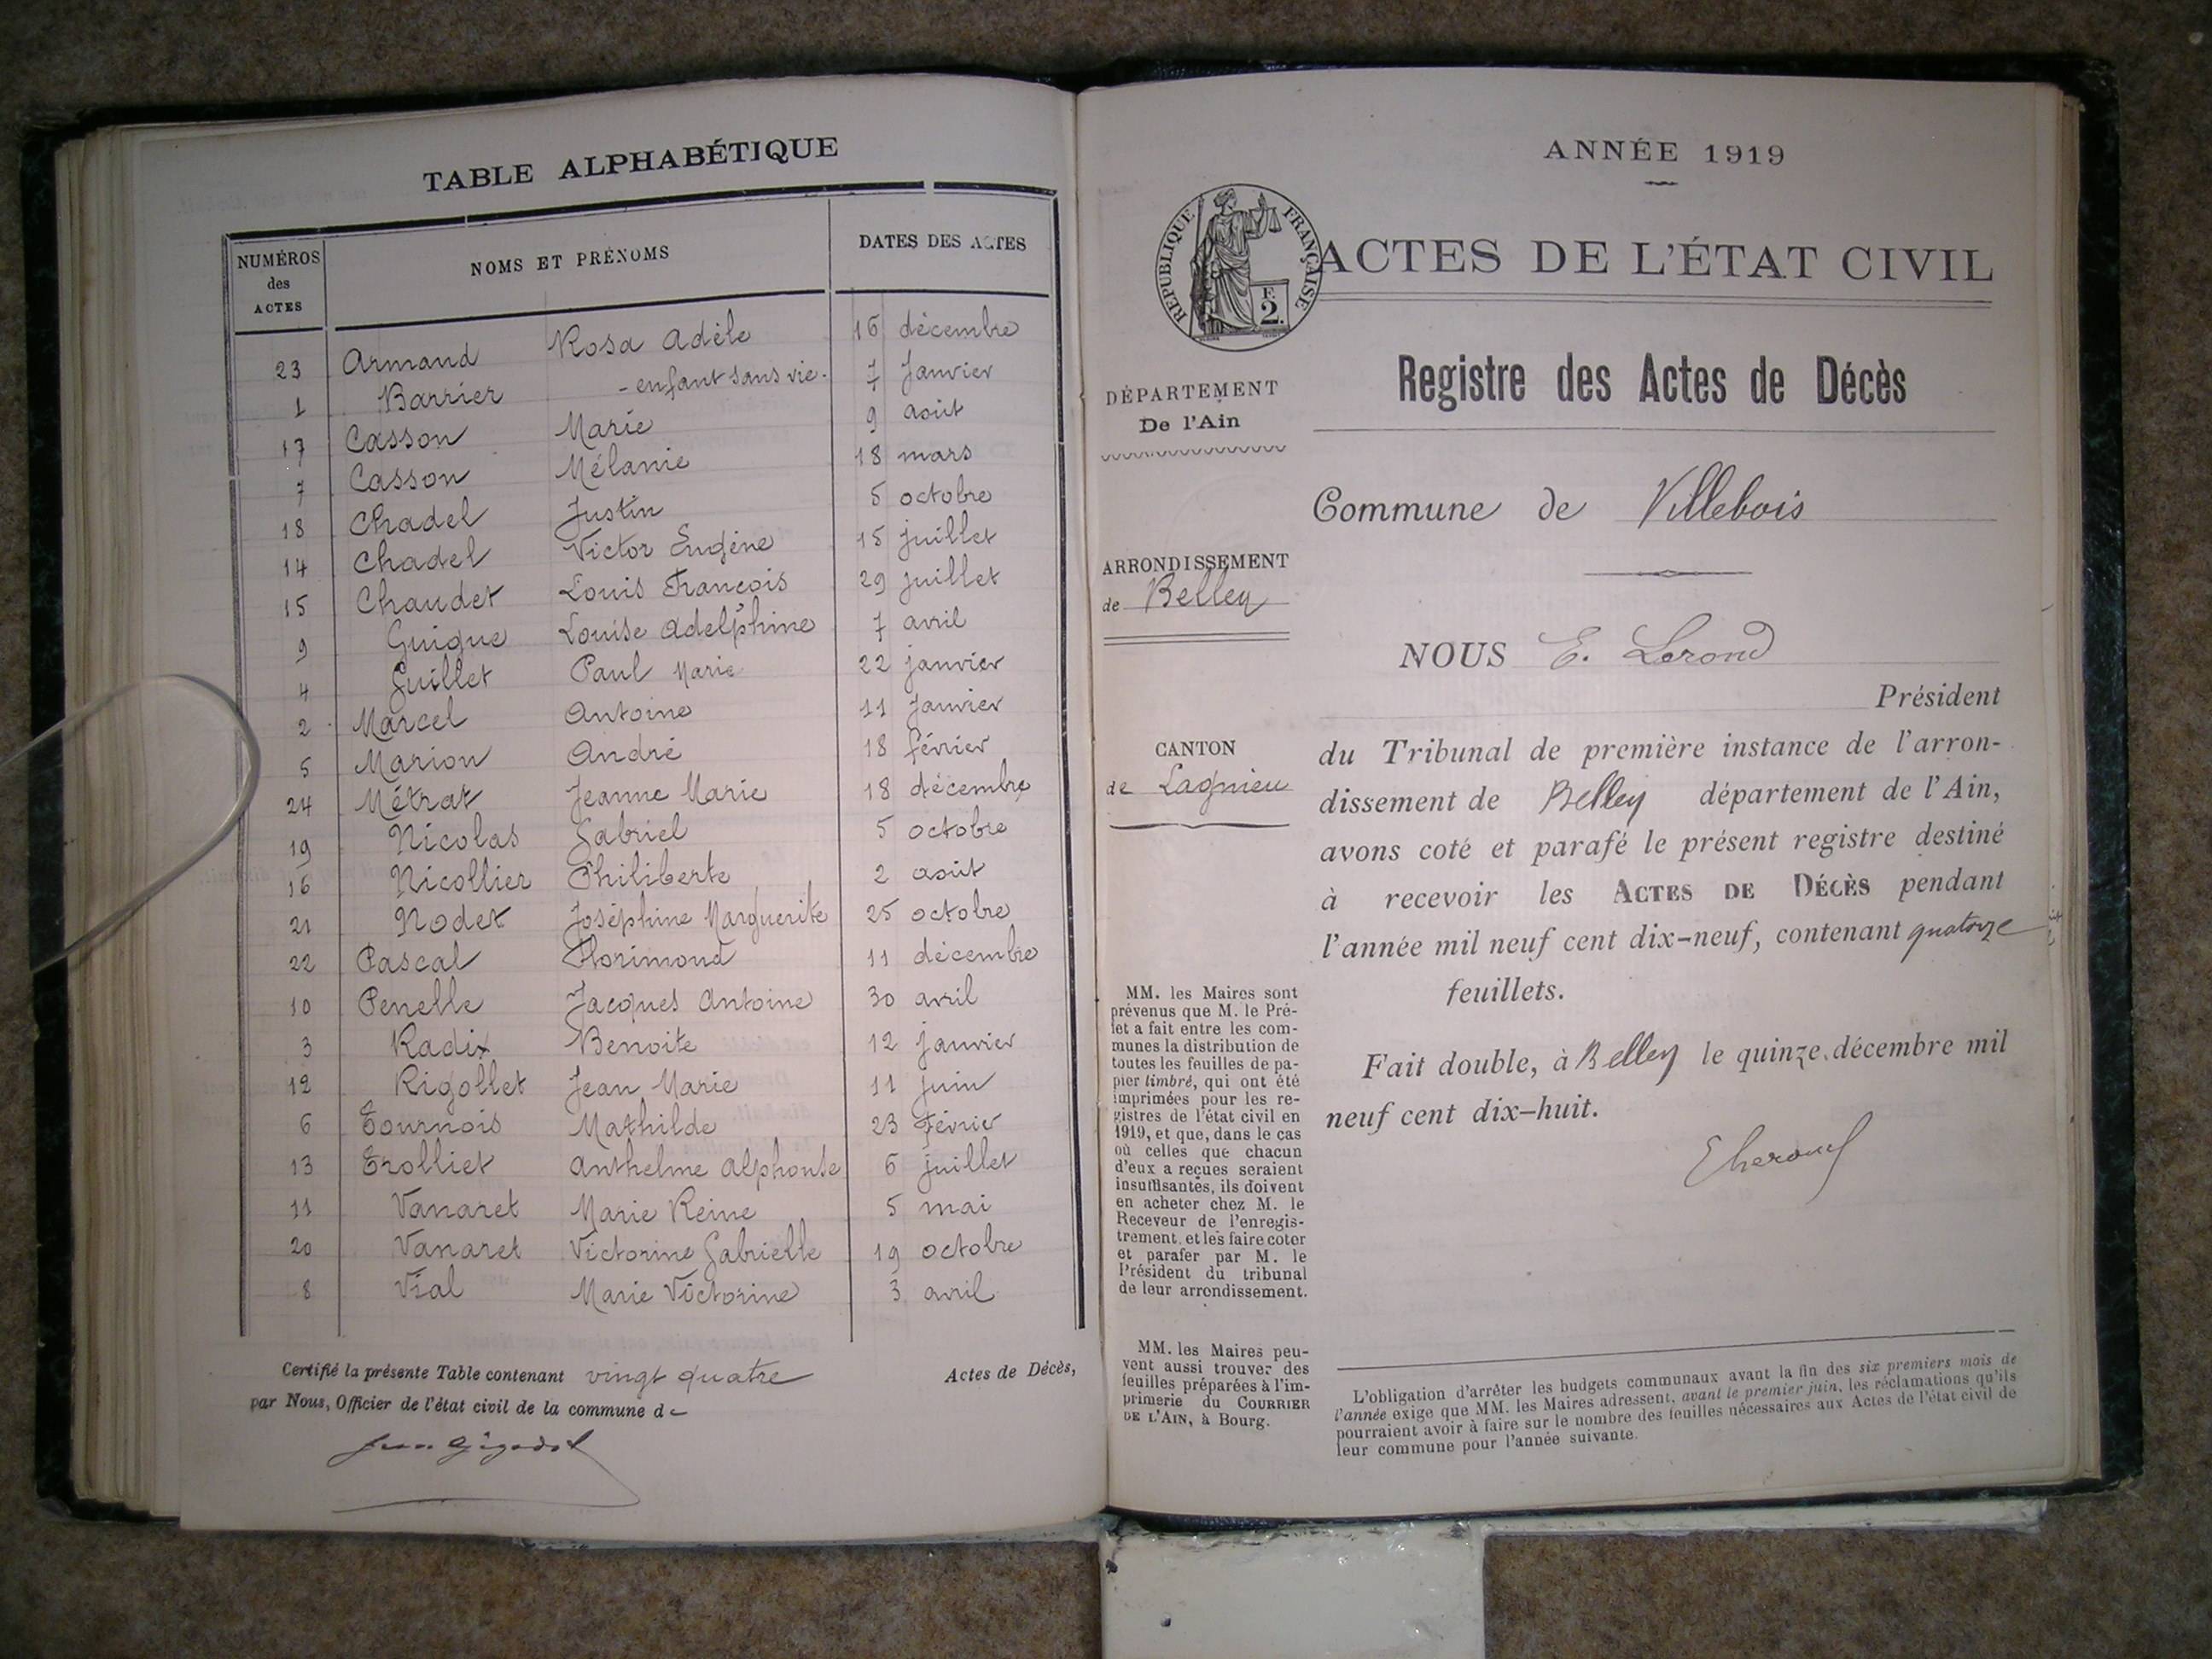 TABLE ALPHABÉTIQUE
NUMÉROS des ACTES NOMS ET PRÉNOMS DATES DES ACTES
23 Armand Rosa Adèle 16 décembre
1 Barrier - enfant sans vie - 7 Janvier
17 Casson Marie 9 août
7 Casson Mélanie 18 mars
18 Chadel Justin 5 octobre
14 Chadel Victor Eugène 15 juillet
15 Chaudet Louis François 29 juillet
9 Guigue Louise Adelphine 7 avril
4 Guillet Paul Marie 22 janvier
2 Marcel Antoine 11 Janvier
5 Marion André 18 février
24 Métrat Jeanne Marie 18 décembre
19 Nicolas Gabriel 5 octobre
16 Nicollier Philiberte 2 août
21 Nodet Joséphine Marguerite 25 octobre
22 Pascal Florimond 11 décembre
10 Penelle Jacques Antoine 30 avril
3 Radix Benoite 12 janvier
12 Rigollet Jean Marie 11 juin
6 Tournois Mathilde 23 février
13 Trolliet Anthelme Alphonse 6 juillet
11 Vanaret Marie Reine 5 mai
20 Vanaret Victorine Gabrielle 19 octobre
8 Vial Marie Victorine 3 avril
Certifié la présente Table contenant vingt quatre Actes de Décès,
par Nous, Officier de l'état civil de la commune de
ANNÉE 1919
RÉPUBLIQUE FRANÇAISE
F. 2.
ACTES DE L'ÉTAT CIVIL
Registre des Actes de Décès
DÉPARTEMENT
De l'Ain
Commune de Villebois
ARRONDISSEMENT
de Belley
NOUS E. Lerond
Président
CANTON
de Lagnieu
du Tribunal de première instance de l'arron-
dissement de Belley département de l'Ain,
avons coté et parafé le présent registre destiné
à recevoir les ACTES DE DÉCÈS pendant
l'année mil neuf cent dix-neuf, contenant quatorze
feuillets.
Fait double, à Belley le quinze décembre mil
neuf cent dix-huit.
MM. les Maires sont
prévenus que M. le Pré-
fet a fait entre les com-
munes la distribution de
toutes les feuilles de pa-
pier timbré, qui ont été
imprimées pour les re-
gistres de l'état civil en
1919, et que, dans le cas
où celles que chacun
d'eux a reçues seraient
insuffisantes, ils doivent
en acheter chez M. le
Receveur de l'enregis-
trement, et les faire coter
et parafer par M. le
Président du tribunal
de leur arrondissement.
MM. les Maires peu-
vent aussi trouver des
feuilles préparées à l'im-
primerie du COURRIER
DE L'AIN, à Bourg.
L'obligation d'arrêter les budgets communaux avant la fin des six premiers mois de
l'année exige que MM. les Maires adressent, avant le premier juin, les réclamations qu'ils
pourraient avoir à faire sur le nombre des feuilles nécessaires aux Actes de l'état civil de
leur commune pour l'année suivante.